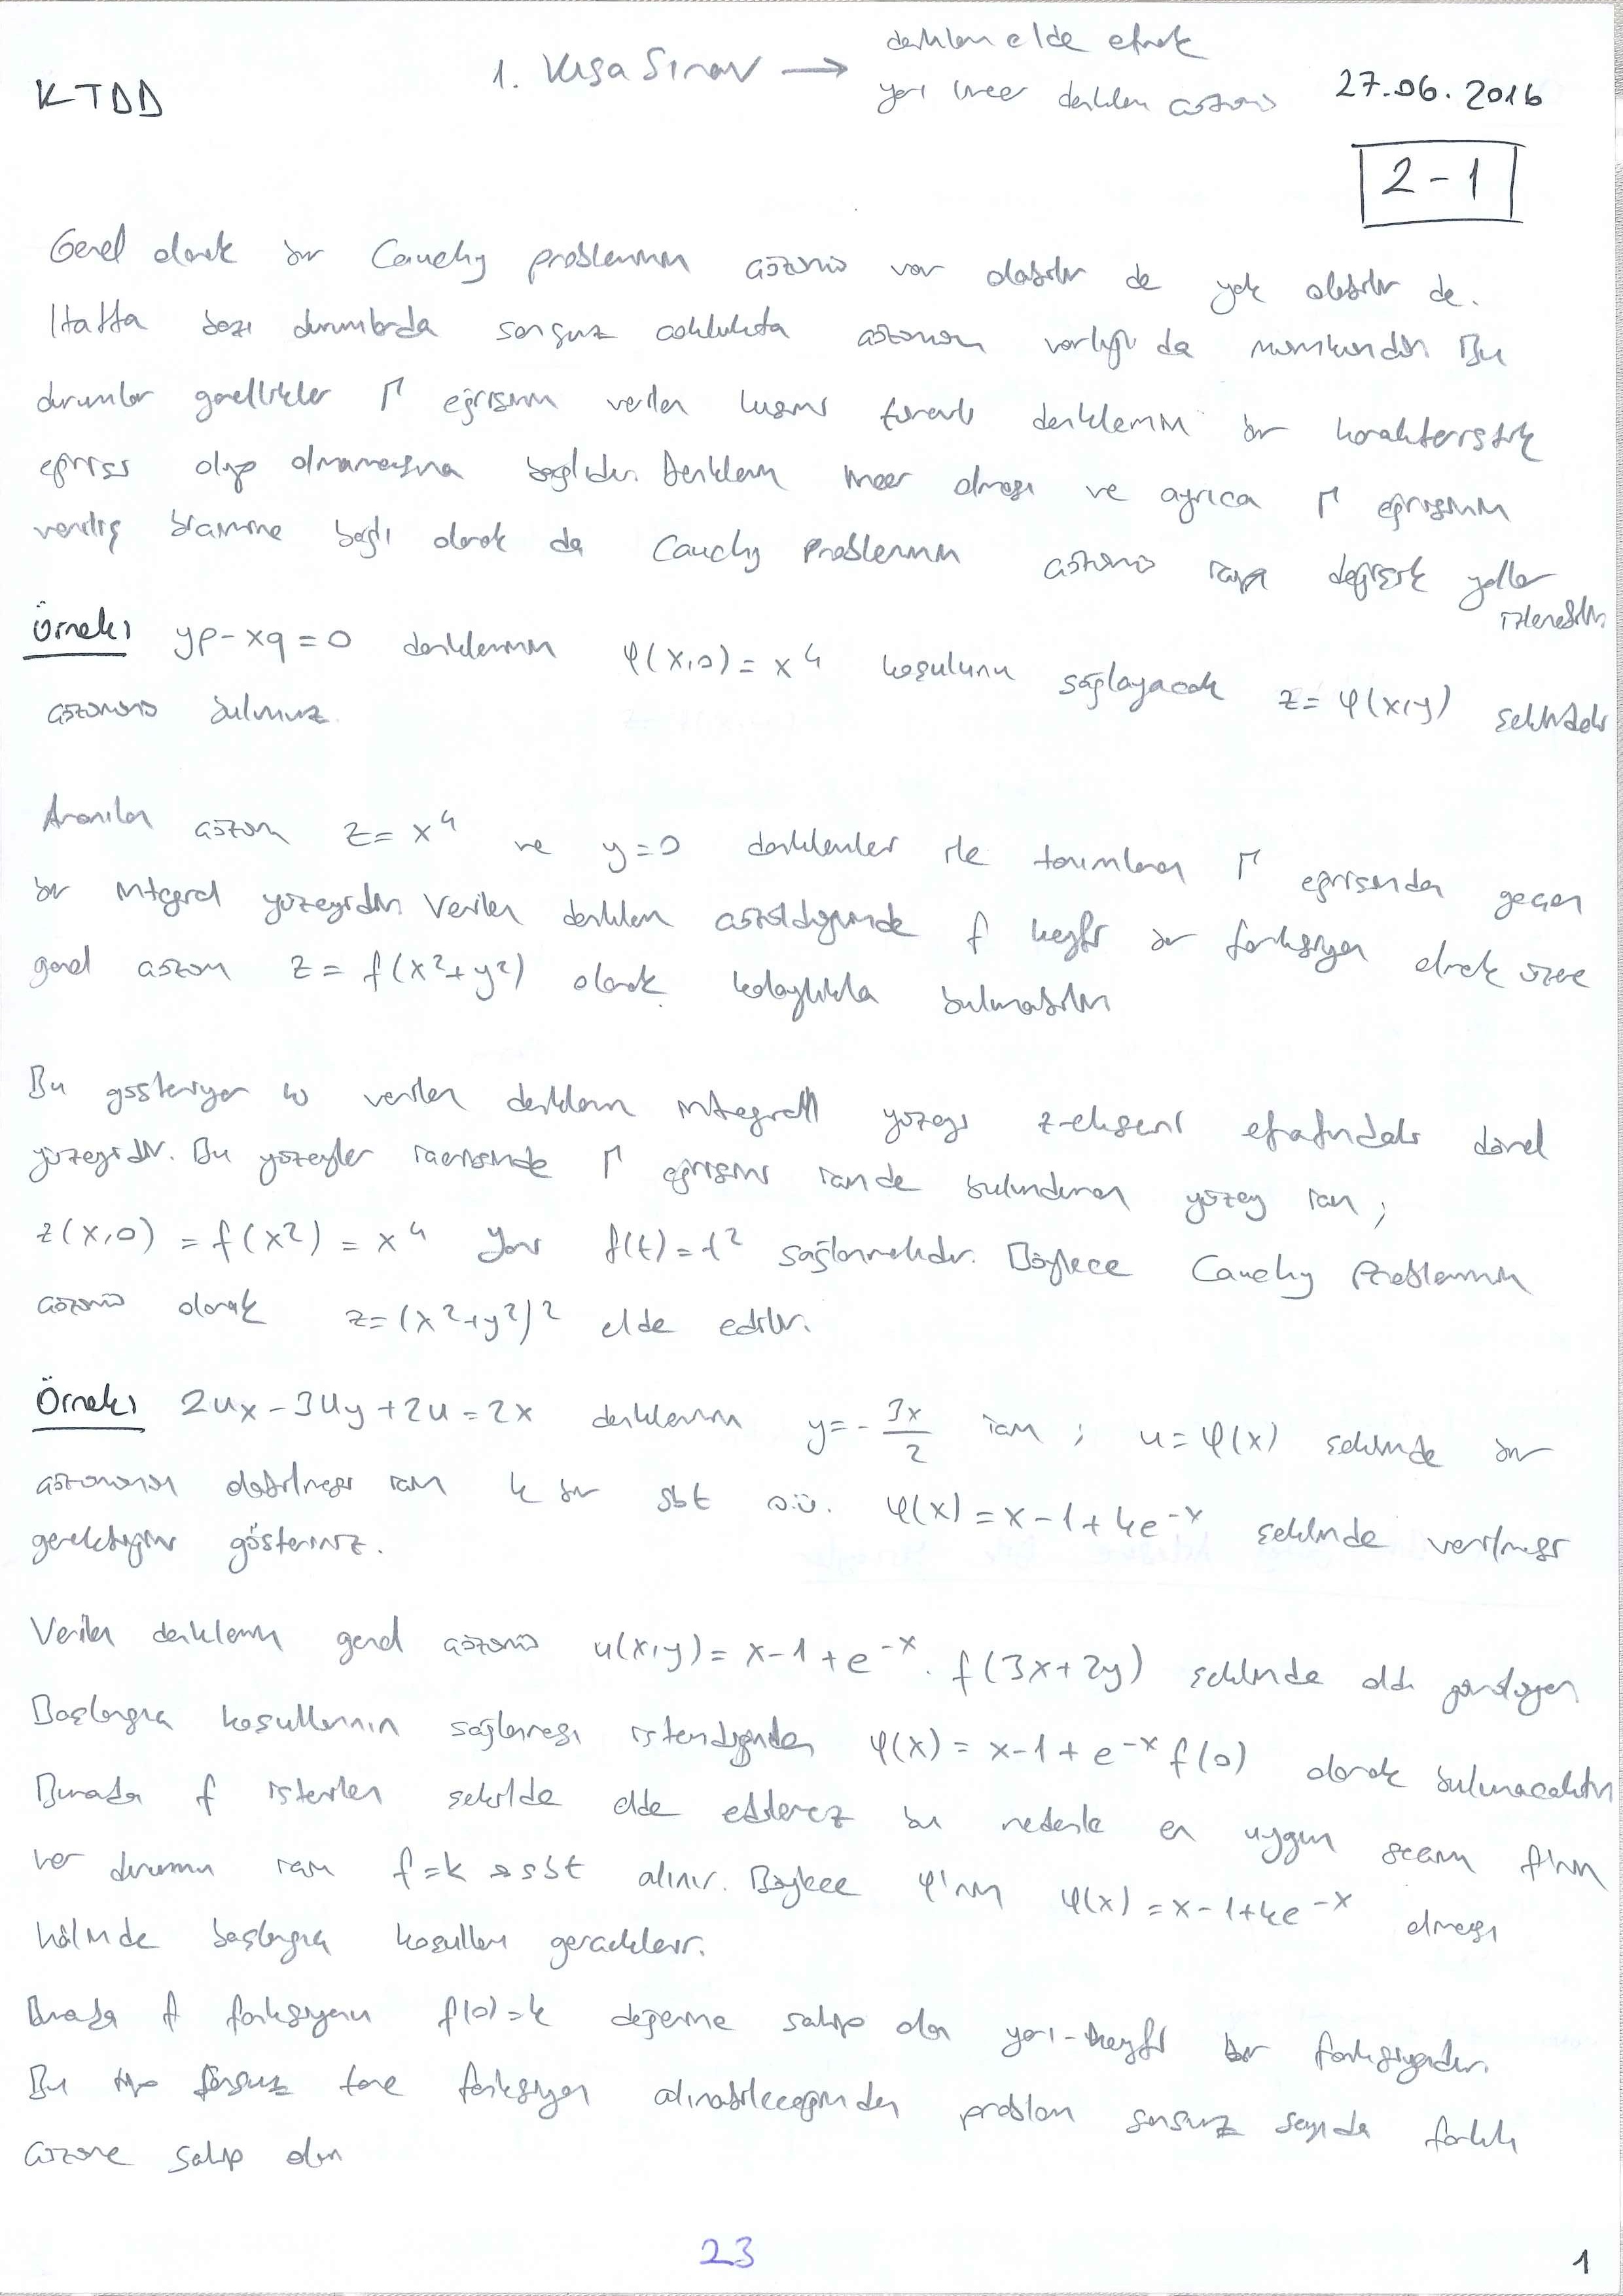 KTDD
1. Kısa Sınav → denklem elde etmek
yarı lineer denklem çözümü
27.06.2016
2-1
Genel olarak bir Cauchy probleminin çözümü var olabilir de yok olabilir de.
Hatta bazı durumlarda sonsuz çoklukta çözümün varlığı da mümkündür. Bu
durumlar genellikle Γ eğrisinin verilen kısmi türevli denklemin bir karakteristik
eğrisi olup olmamasına bağlıdır. Denklem lineer olması ve ayrıca Γ eğrisinin
veriliş biçimine bağlı olarak da Cauchy Probleminin çözümü için değişik yollar
izlenebilir.
Örnek: yp-xq=0 denkleminin φ(x,0)=x⁴ koşulunu sağlayacak z=φ(x,y) şeklindeki
çözümünü bulunuz.
Aranılan çözüm z=x⁴ ve y=0 denklemler ile tanımlanan Γ eğrisinden geçen
bir integral yüzeyidir. Verilen denklem çözüldüğünde f keyfi bir fonksiyon olmak üzere
genel çözüm z=f(x²+y²) olarak kolaylıkla bulunabilir.
Bu gösteriyor ki verilen denklem integral yüzeyi z-ekseni etrafındaki dönel
yüzeyidir. Bu yüzeyler içerisinde Γ eğrisini içinde bulunduran yüzey için;
z(x,0)=f(x²)=x⁴ yani f(t)=t² sağlanmalıdır. Böylece Cauchy Probleminin
çözümü olarak z=(x²+y²)² elde edilir.
Örnek: 2ux-3uy+2u=2x denklemin y=-3x/2 için; u=φ(x) şeklinde bir
çözümünün olabilmesi için k bir sbt o.ü. φ(x)=x-1+ke⁻ˣ şeklinde verilmesi
gerektiğini gösteriniz.
Verilen denklemin genel çözümü u(x,y)=x-1+e⁻ˣ.f(3x+2y) şeklinde old. görülüyor.
Başlangıç koşullarının sağlanması istendiğinden φ(x)=x-1+e⁻ˣf(0) olarak bulunacaktır.
Burada f istenilen şekilde elde edilemez bu nedenle en uygun seçim f'nin
her durumu için f=k sbt alınır. Böylece φ'nin φ(x)=x-1+ke⁻ˣ olması
hâlinde başlangıç koşulları gerçeklenir.
Burada f fonksiyonu f(0)=k değerine sahip olan yarı-keyfi bir fonksiyondur.
Bu tip sonsuz tane fonksiyon alınabileceğinden problem sonsuz sayıda farklı
çözüme sahip olur
23
1